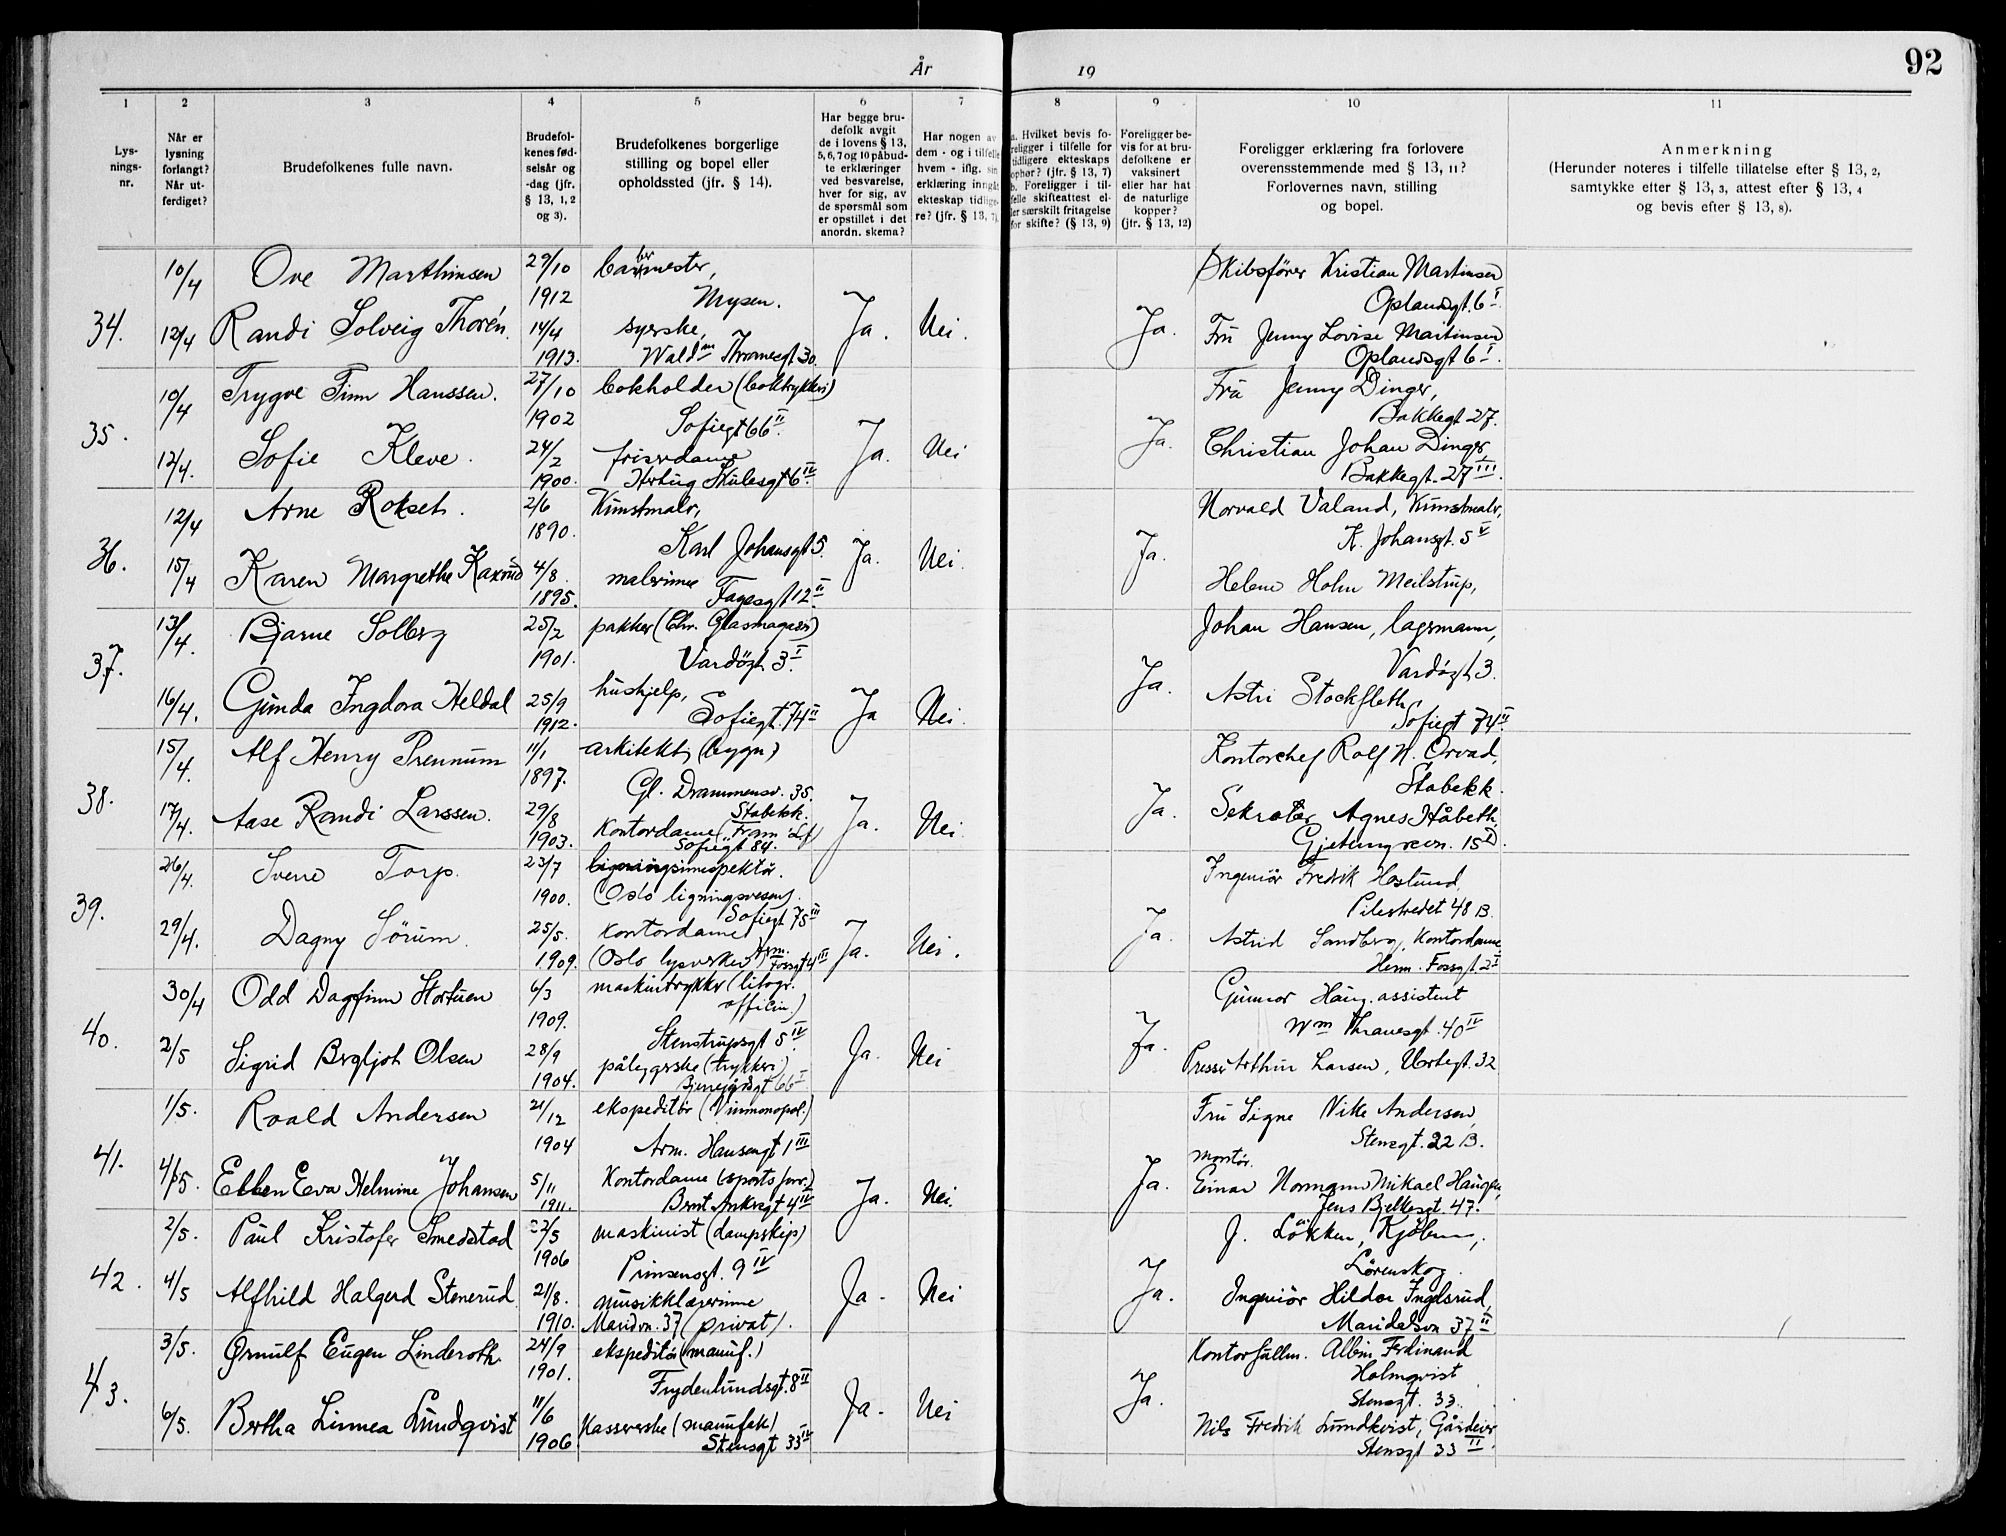 År
19
92
1
2
3
4
5
6
7
8
9
10
11
Lys-
nings-
nr.
Når er
lysning
forlangt?
Når ut-
ferdiget?
Brudefolkenes fulle navn.
Brudefol-
kenes fød-
selsår og
-dag (jfr.
§ 13, 1, 2
og 3).
Brudefolkenes borgerlige
stilling og bopel eller
opholdssted (jfr. § 14).
Har begge bru-
defolk avgit
de i lovens § 13,
5, 6, 7 og 10 påbud-
te erklæringer
ved besvarelse,
hver for sig, av
de spørsmål som
er opstillet i det
anordn. skema?
Har nogen av
dem - og i tilfelle
hvem - iflg. sin
erklæring inngåt
ekteskap tidlige-
re? (jfr. § 13, 7)
a. Hvilket bevis fo-
religger i tilfelle for
tidligere ekteskaps
ophør? (jfr. § 13, 7)
b. Foreligger i til-
felle skifteattest el-
ler særskilt fritagelse
for skifte? (§ 13, 9)
Foreligger be-
vis for at bru-
defolkene er
vaksinert
eller har hat
de naturlige
kopper?
(jfr. § 13, 12)
Foreligger erklæring fra forlovere
overensstemmende med § 13, 11?
Forlovernes navn, stilling
og bopel.
Anmerkning
(Herunder noteres i tilfelle tillatelse efter § 13, 2,
samtykke efter § 13, 3, attest efter § 13, 4
og bevis efter § 13, 8).
34.
10/4 Ove Marthinsen 29/10 1912 barbermester,
Mysen.
12/4 Randi Solveig Thorén. 14/4 1913. syerske,
Waldm Thranesgt 30.
Ja. Nei. Ja.
Skibsfører Kristian Martinsen
Oplandsgt. 6 I.
Fru Jenny Lovise Martinsen
Oplandsgt 6 I.
35.
10/4 Trygve Finn Hanssen. 27/10 1902 bokholder (boktrykkeri)
Sofiegt 66 II.
12/4. Sofie Kleve. 24/2 1900. friserdame
Hertug Skulesgt 6 IV.
Ja. Nei Ja.
Fru Jenny Dinger,
Bakkegt 27.
Christian Johan Dinger,
Bakkegt. 27 III.
36.
12/4 Arne Rokseth. 2/6 1890. Kunstmaler,
Karl Johansgt 5.
15/4 Karen Margrethe Kaxrud 4/8 1895. malerinne
Fagesgt 12 II.
Ja. Nei. Ja.
Norvald Valand, Kunstmaler,
K. Johansgt. 5 V
Helene Holm Meilstrup,
37.
13/4. Bjarne Solberg 25/2 1901. pakker (Chr. Glasmagasin)
Vardøgt. 3 I.
16/4. Gunda Ingdora Heldal 25/9 1912. hushjelp,
Sofiegt. 74 II
Ja Nei. Ja.
Johan Hansen, lagermann,
Vardøgt 3.
Astri Stockfleth
Sofiegt 74 II.
38.
15/4. Alf Henry Prennum 11/1 1897. arkitekt (bygn.)
Gl. Drammensv. 35.
Stabekk.
17/4. Aase Randi Larssen. 29/8 1903. Kontordame ("Fram" Lf)
Sofiegt 84.
Ja. Nei. Ja.
Kontorchef Rolf N. Orvad,
Stabekk.
Sekretær Agnes Håbeth,
Gjetemyrsvn. 15 D.
39.
26/4. Sverre Torp. 23/7 1900. ligningsinspektør.
(Oslo ligningsvesen).
Sofiegt 75 III
29/4. Dagny Sørum. 25/5. 1909. kontordame
(Oslo lysverker) Herm. Fossgt 4 III
Ja. Nei. Ja.
Ingeniør Fredrik Haslund,
Pilestredet 48 B.
Astrid Sandberg, Kontordame
Herm. Fossgt. 2 I
40.
30/4 Odd Dagfinn Hortuen 6/3 1909. maskintrykker (litogr.
officin.)
Stenstrupsgt 5 IV
2/5 Sigrid Bergljot Olsen 28/9 1904. påleggerske (trykkeri)
Bjerregårdsgt 66 I
Ja. Nei Ja.
Gunnar Haug. assistent
Wm Thranesgt. 40 IV
Presser Arthur Larsen, Urtegt. 32
41.
1/5. Roald Andersen 21/12 1904 ekspeditør (Vinmonopol.)
Arm. Hansensgt 1 III
4/5. Ellen Eva Helmine Johansen 5/11 1911. Kontordame (sports forr.)
Bernt Ankersgt 4 IV
Ja. Nei. Ja.
Fru Signe Vike Andersen,
Stensgt. 22 B.
montør.
Einar Normann Mikael Haugen,
Jens Bjelkesgt. 47.
42.
2/5. Paul Kristofer Smedstad 22/5 1906 maskinist (dampskip)
Prinsensgt. 9 IV
4/5 Alfhild Halgerd Stenerud. 21/8. 1910. musikklærerinne
Maridvn. 37 (privat).
Ja. Nei Ja.
J. Løkken, Kjøbm.,
Lørenskog.
Ingeniør Hildor Ingelsrud,
Maridalsvn 37 II
43.
3/5. Ørnulf Eugen Linderoth. 24/9 1901. ekspeditør (manuf.)
Frydenlundsgt. 8 II
6/5. Bertha Linnea Lundqvist 11/6 1906. Kassererske (manufak)
Stensgt 33 IV
Ja. Nei Ja.
Kontorfullm. Albin Ferdinand
Holmqvist
Stensgt. 33.
Nils Fredrik Lundkvist, Gårdeier
Stensgt 33 II.